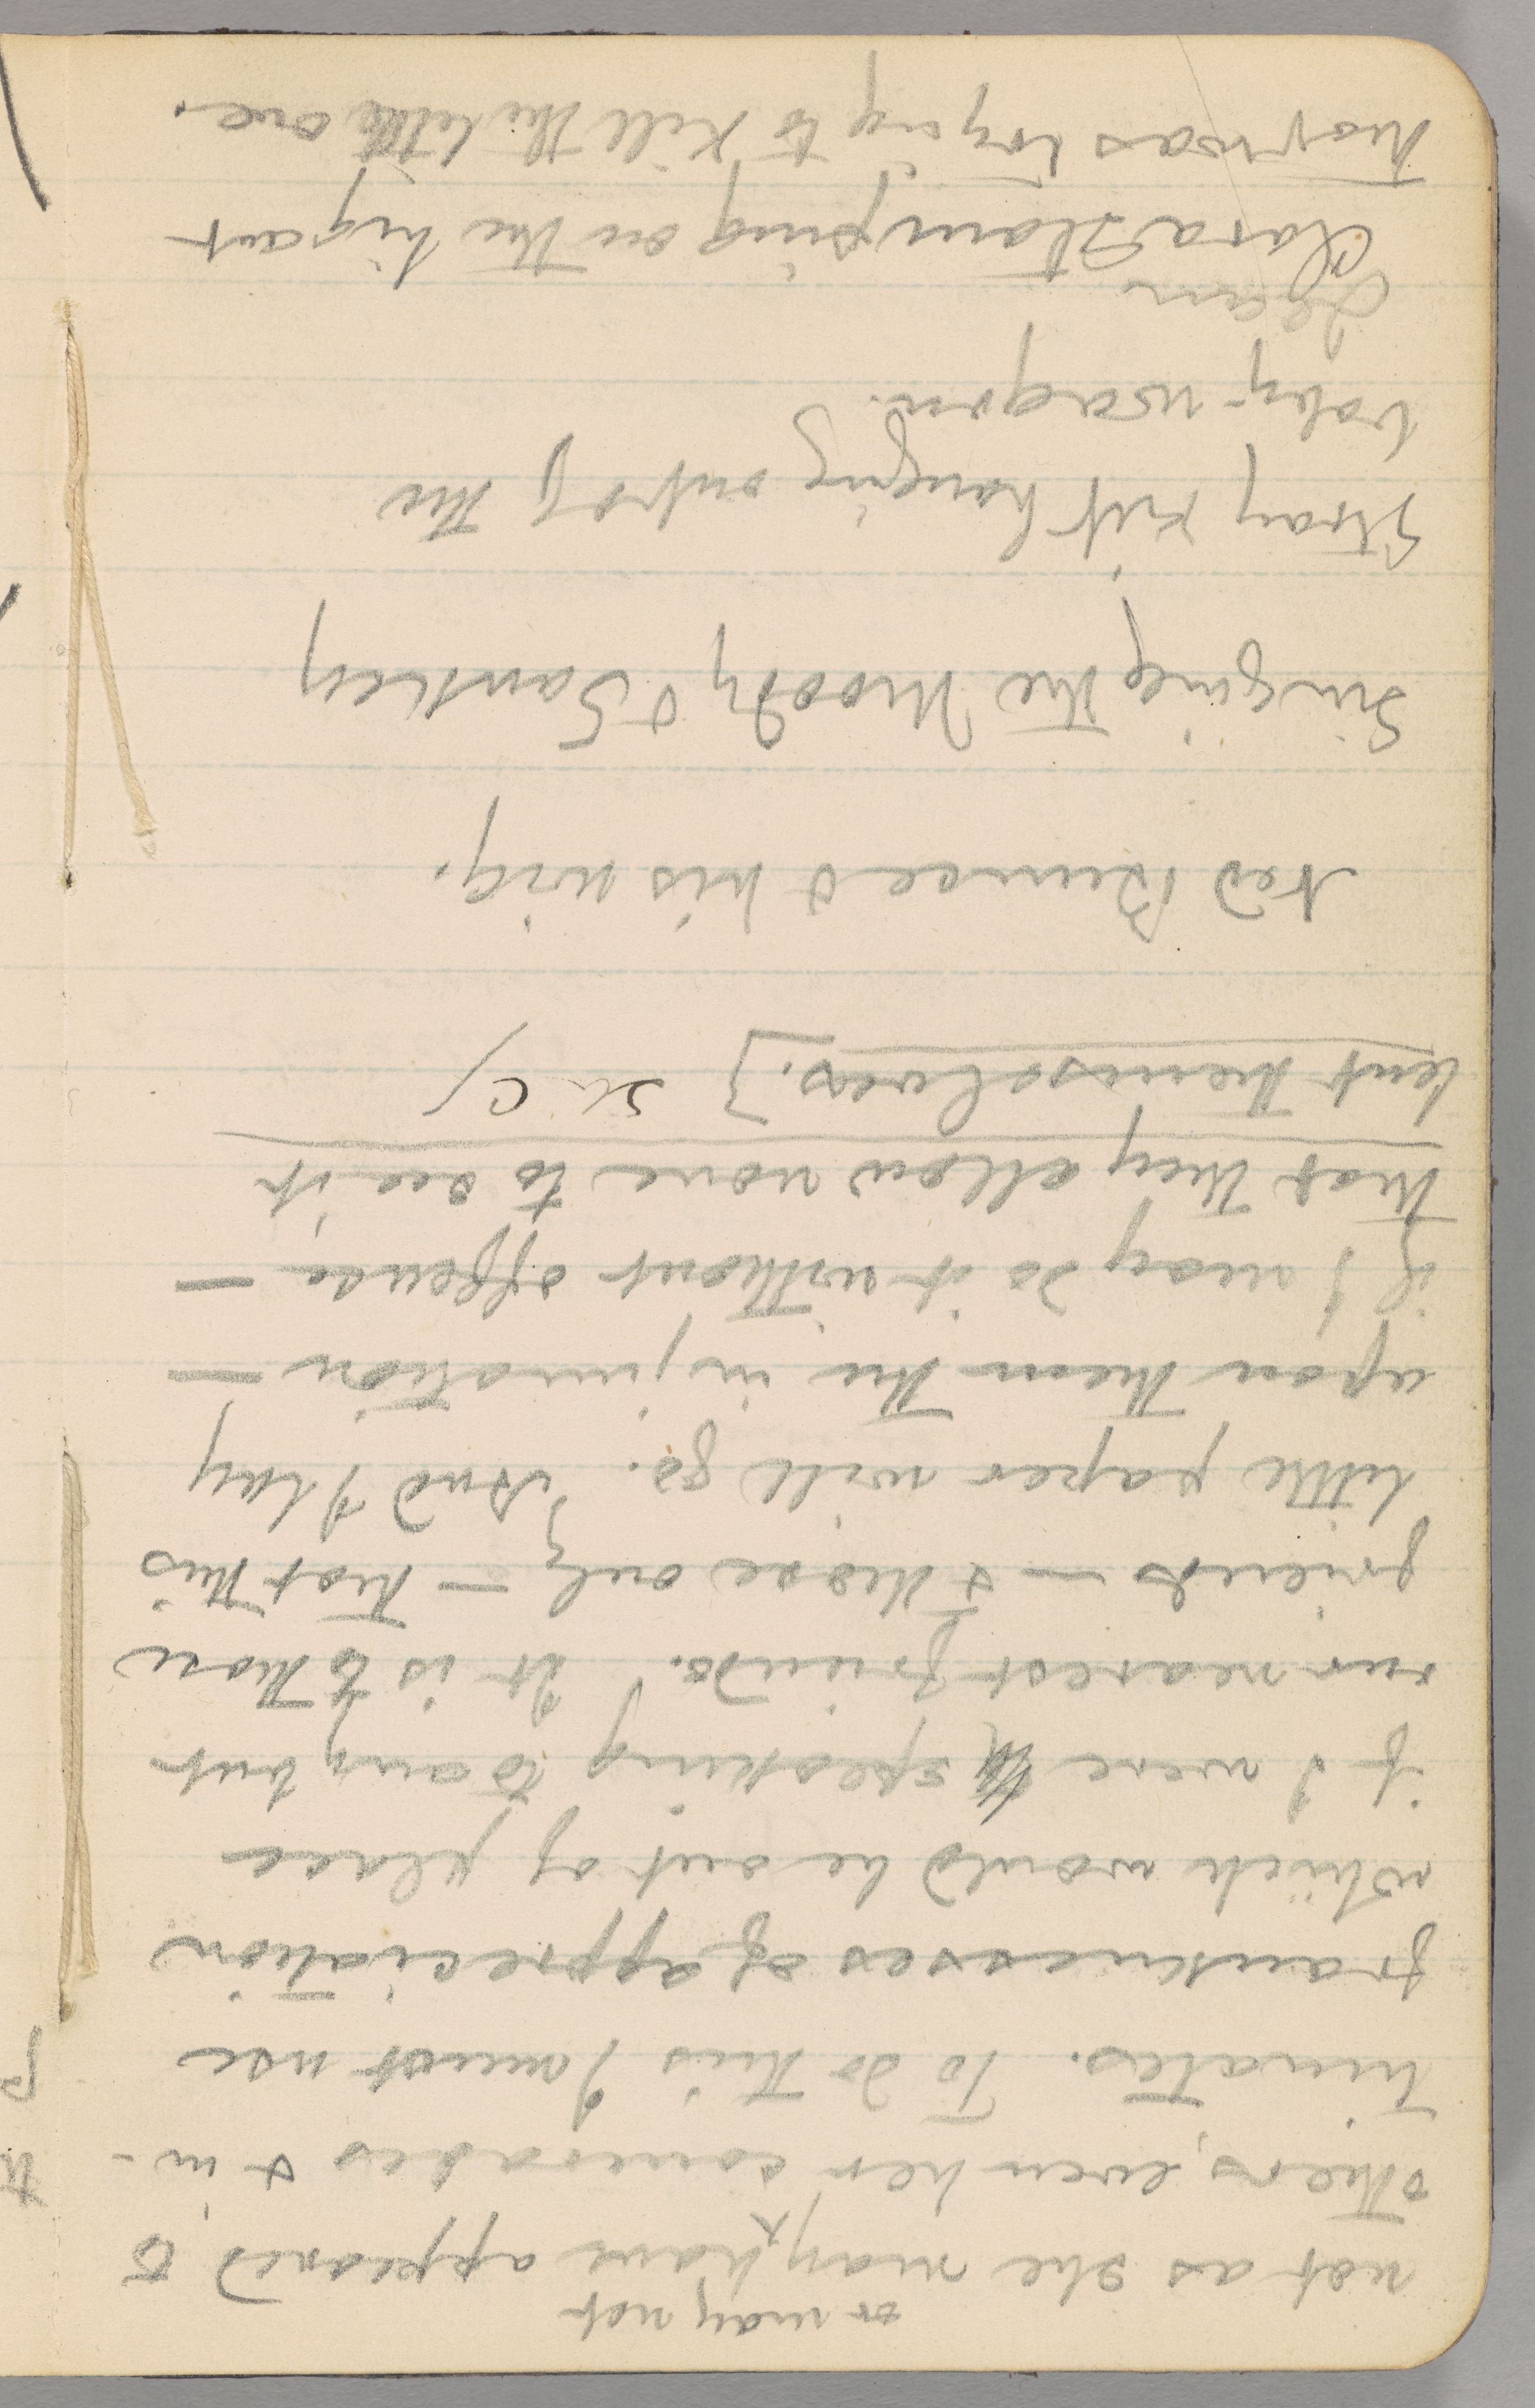 or may not
not as she may ^ have appeared to
others, even her comrades & in-
timates. To do this I must use
franknesses of appreciation
which would be out of place
if I were speaking to any but
our nearest friends. It is to those
friends — & those only — that this
little paper will go. And I lay
upon them the injunction —
if I may do it without offence —
that they allow none to see it
but themselves.]
Ned Bunce & his wig.
Singing the Moody & Sankey
Stray kit hanging out of the
baby-wagon.
Jean
Clara stamping on the big ant
that was trying to kill the little one.